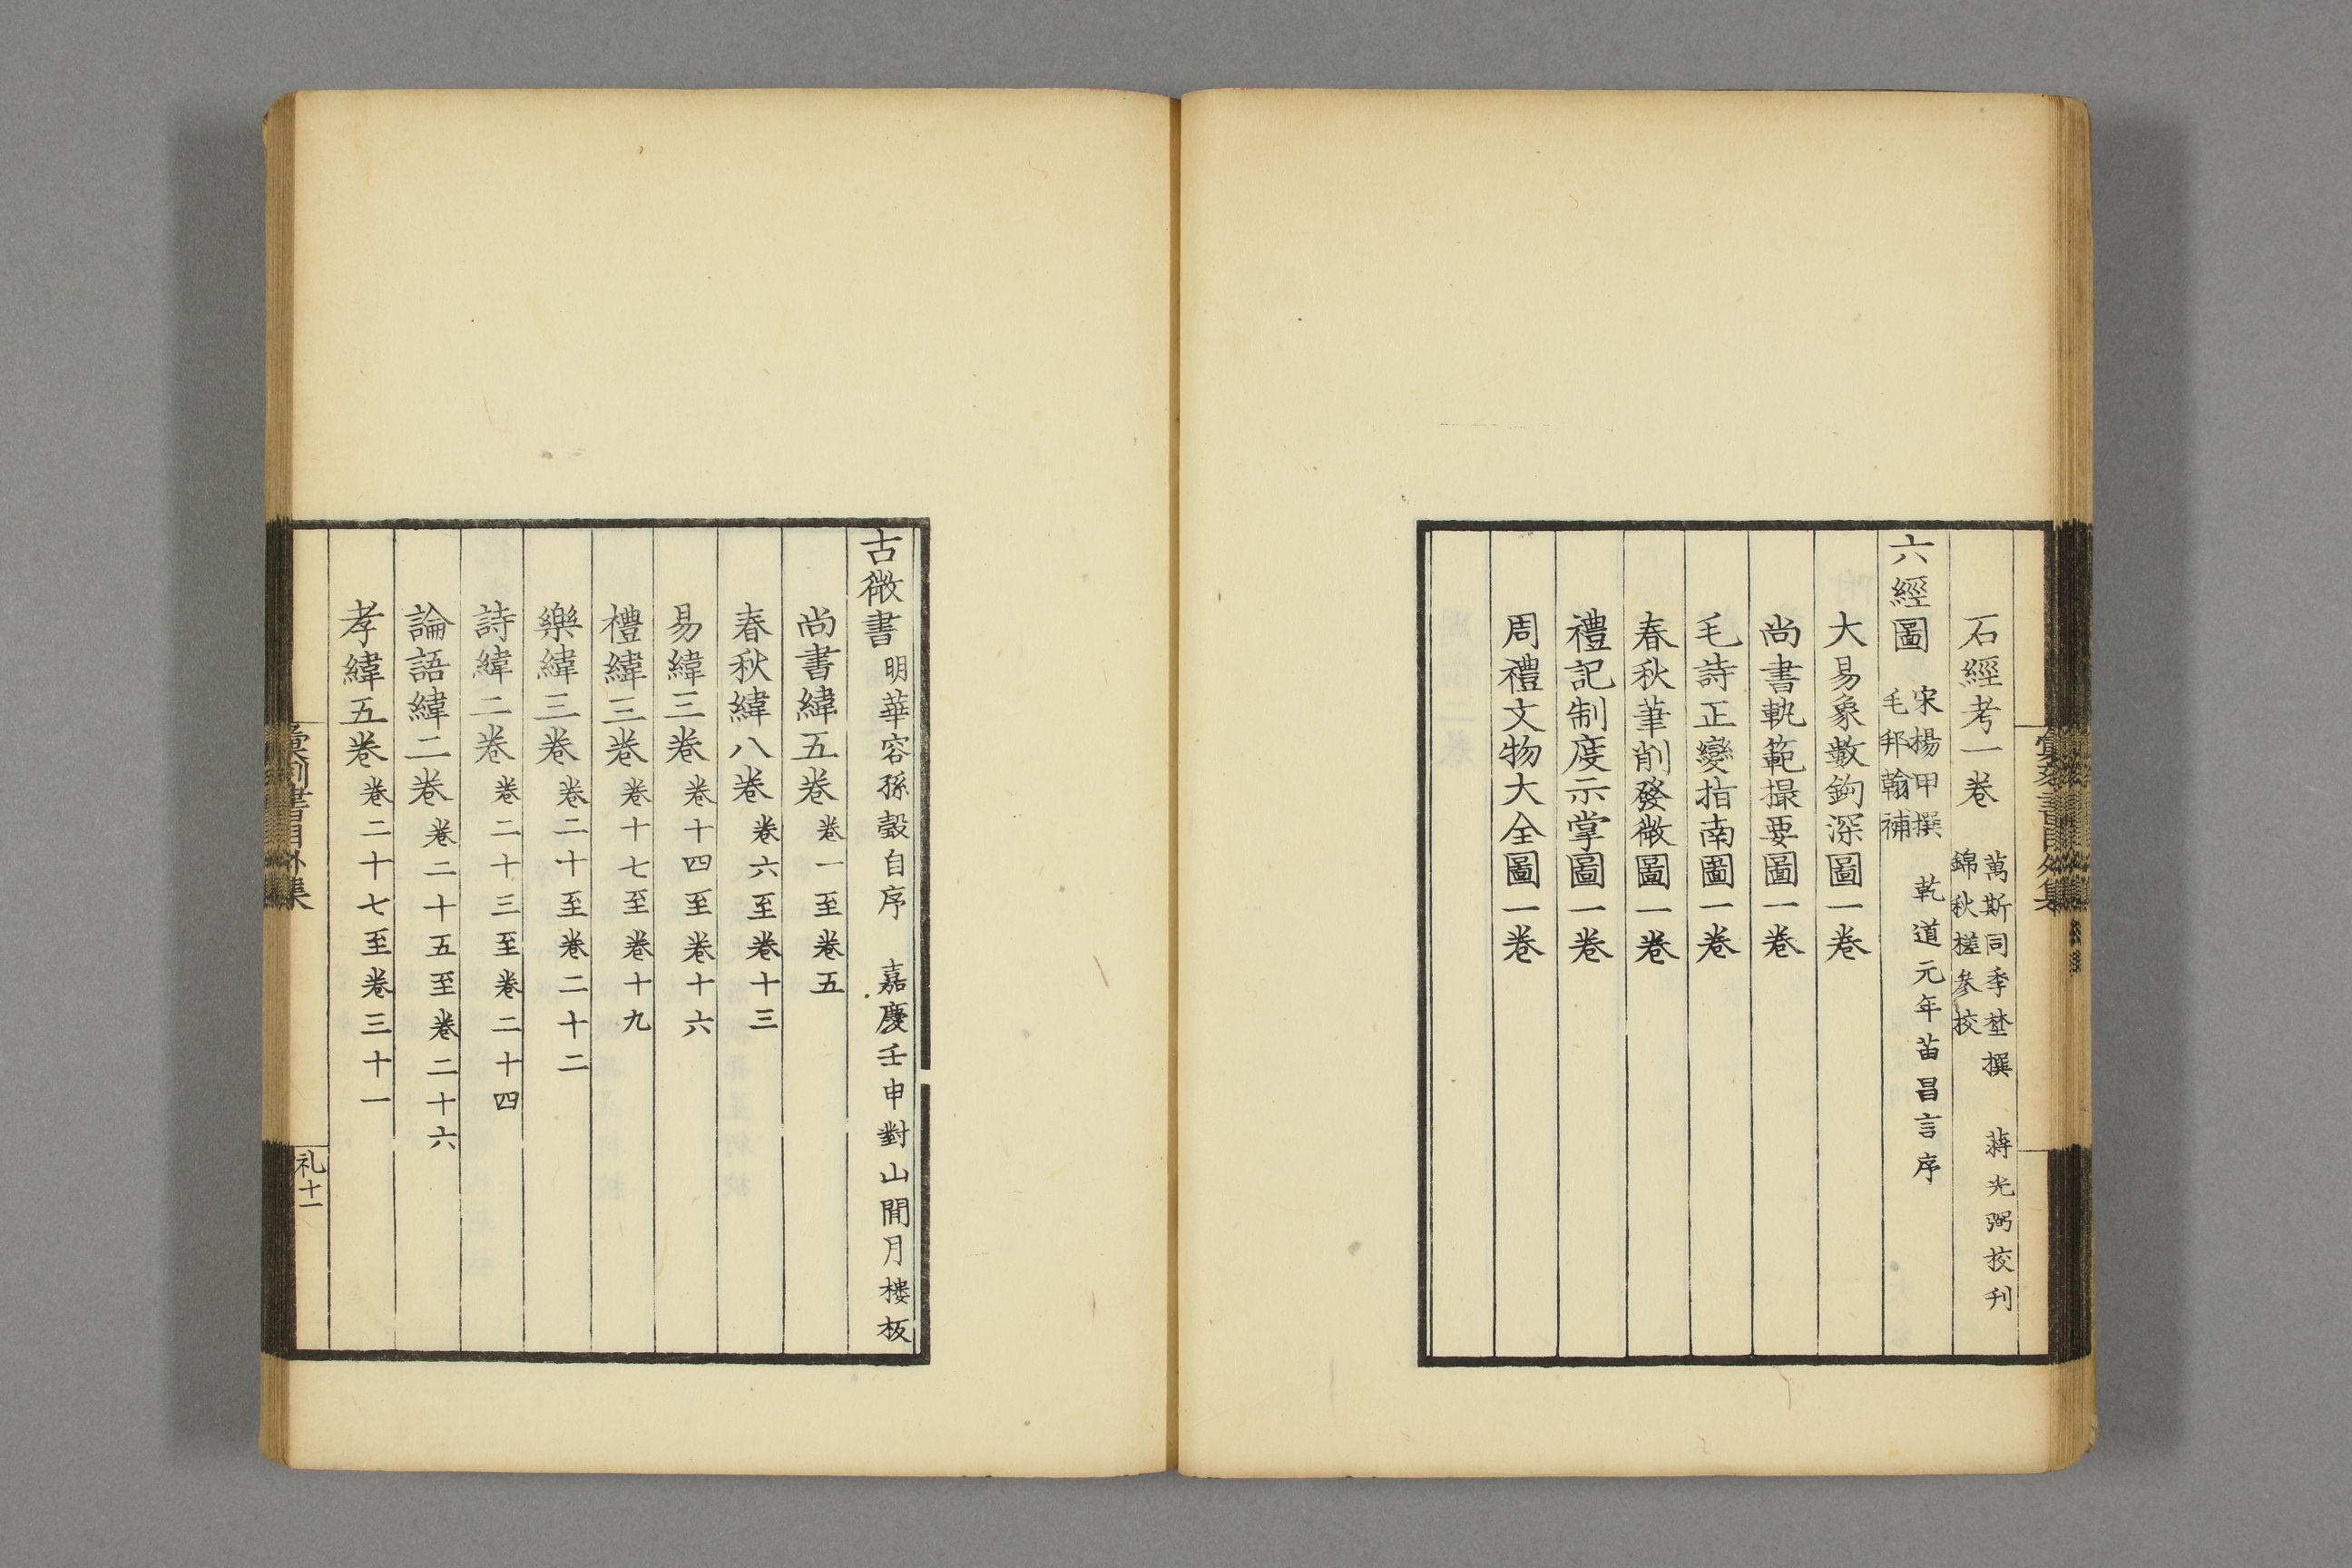 石經考一卷 萬斯同季埜撰 蔣光弼挍刊
錦秋槎參挍
六經圖 宋楊甲撰 乾道元年苗昌言序
毛邦翰補
大易象數鉤深圖一卷
尚書軌範撮要圖一卷
毛詩正變指南圖一卷
春秋筆削發微圖一卷
禮記制度示掌圖一卷
周禮文物大全圖一卷
古微書 明華容孫瑴自序 嘉慶壬申對山問月樓板
尚書緯五卷 卷一至卷五
春秋緯八卷 卷六至卷十三
易緯三卷 卷十四至卷十六
禮緯三卷 卷十七至卷十九
樂緯三卷 卷二十至卷二十二
詩緯二卷 卷二十三至卷二十四
論語緯二卷 卷二十五至卷二十六
孝緯五卷 卷二十七至卷三十一
彙刻書目外集
礼十一